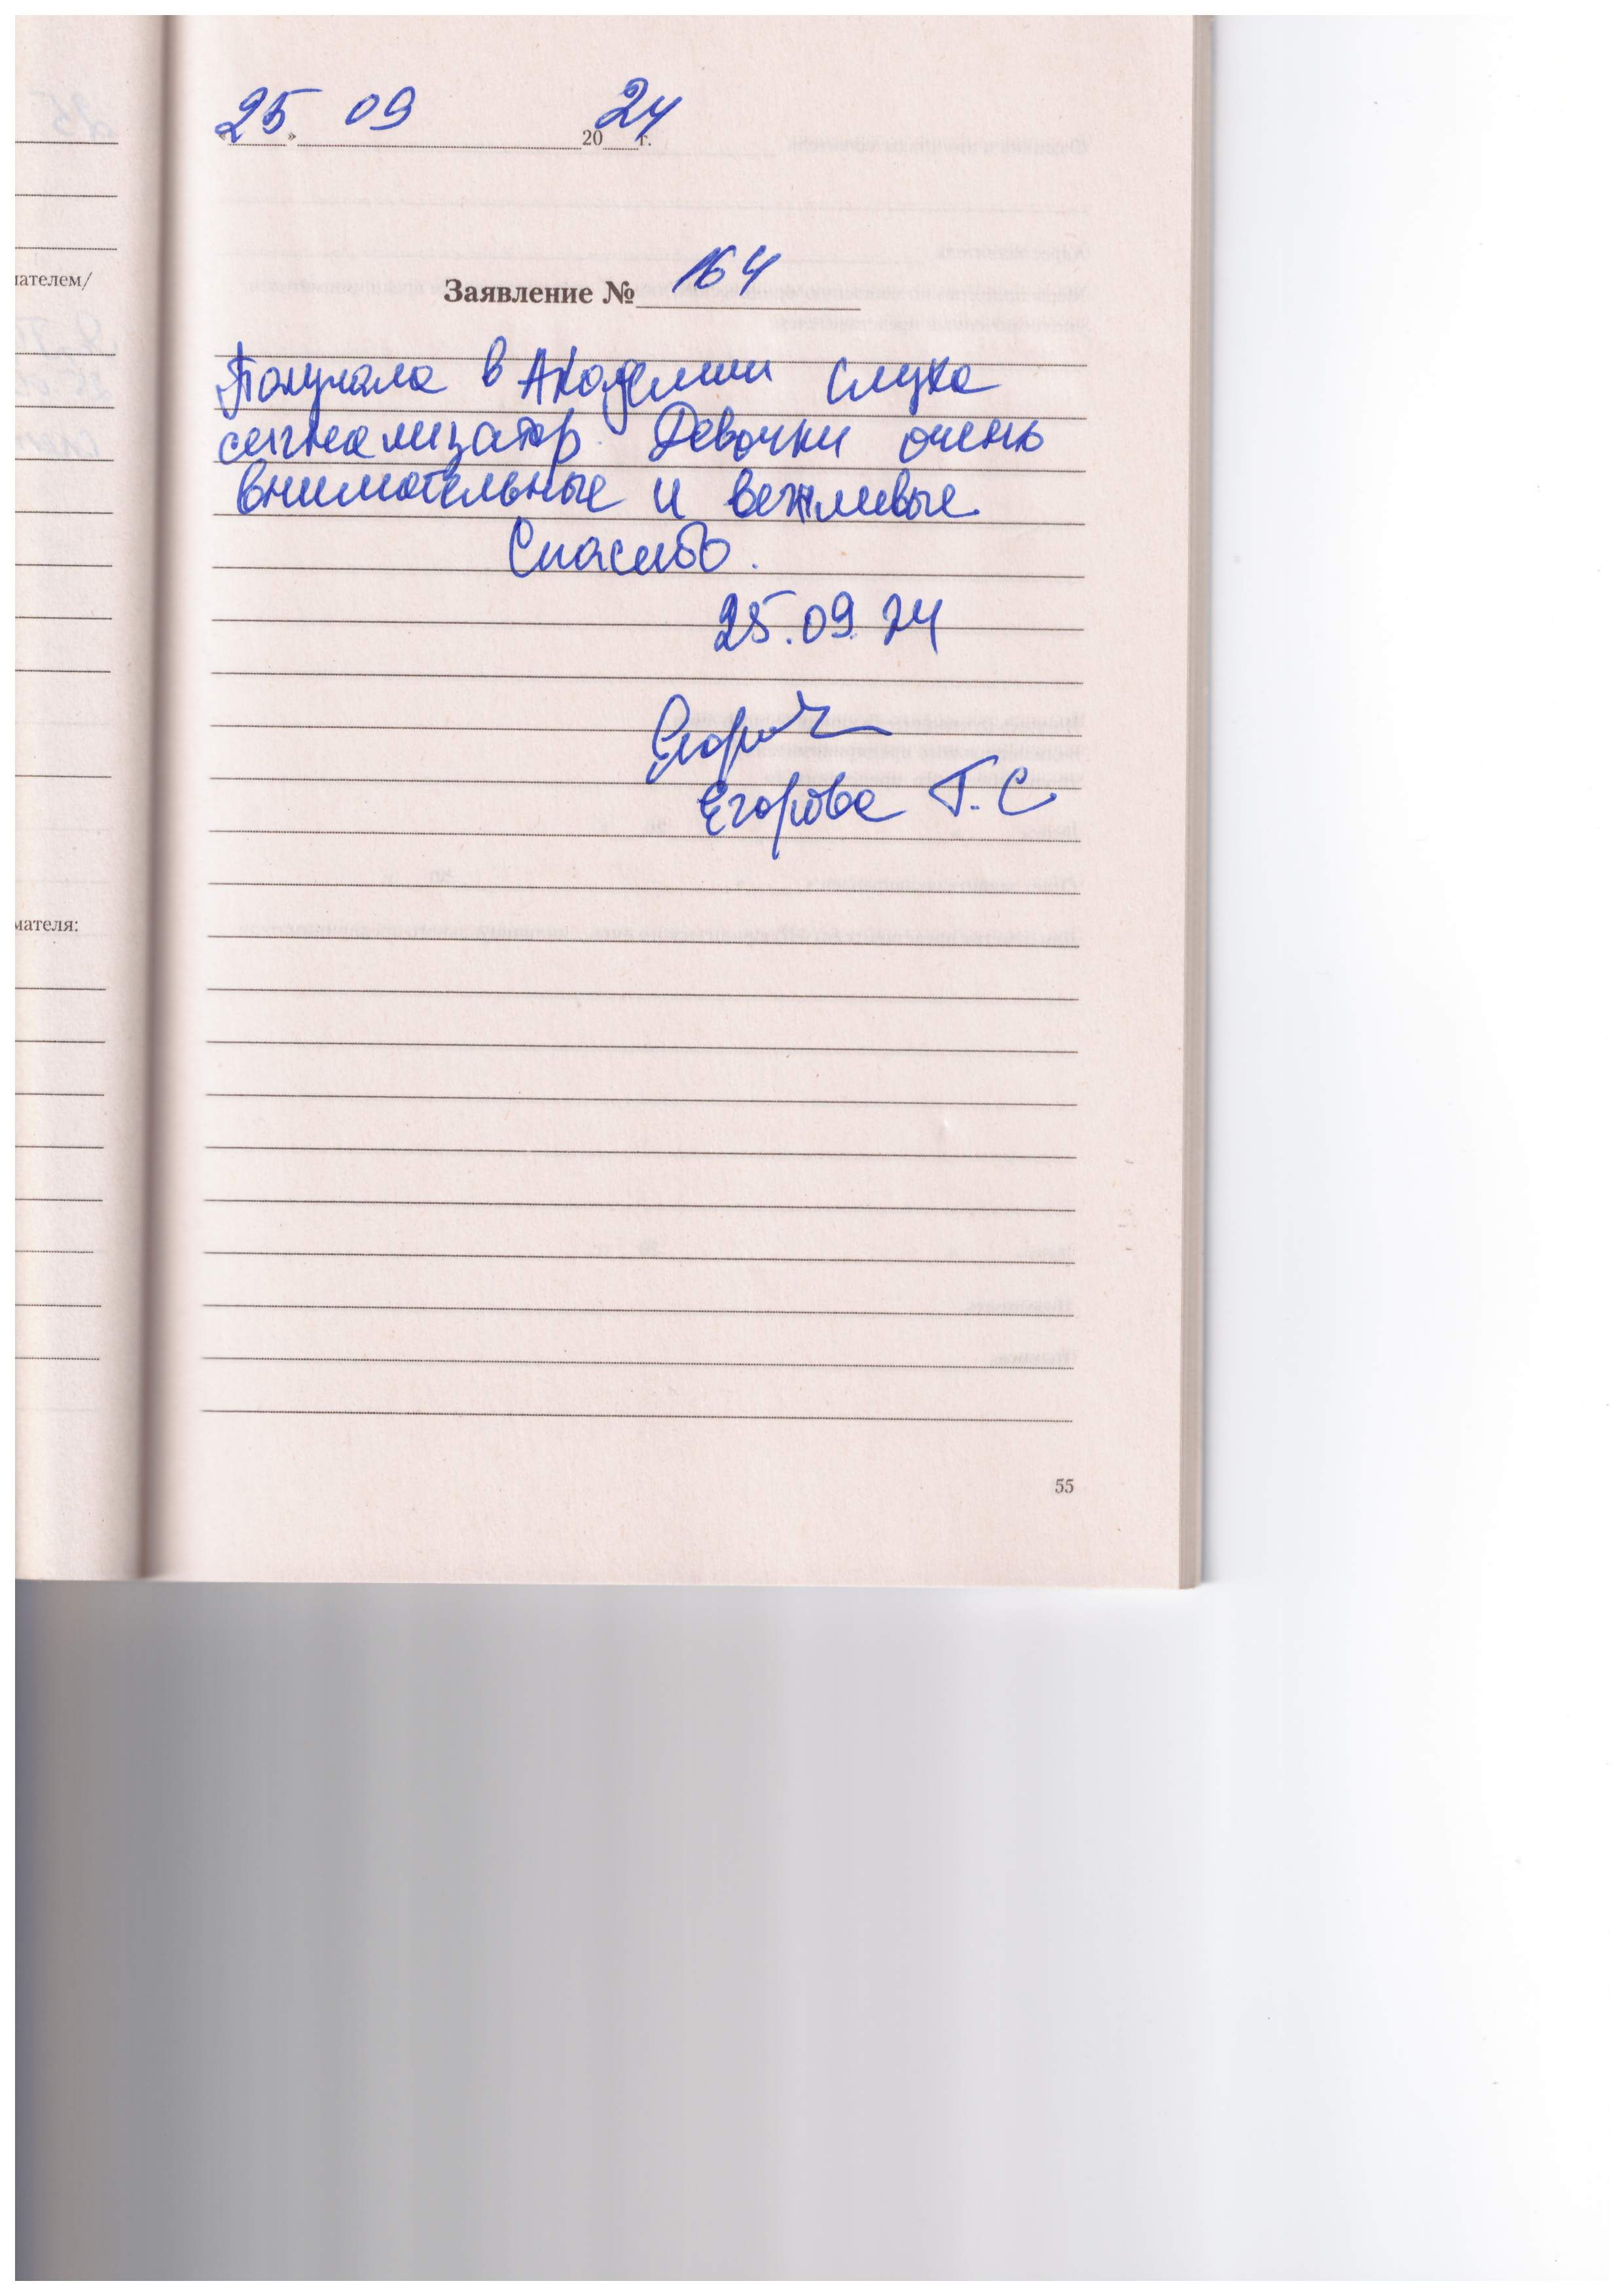 «25» 09 2024 г.
ıателем/
Заявление № 164
Получала в Академии слуха
сигнализатор. Девочки очень
внимательные и вежливые.
Спасибо.
25.09.24
Егорова Г.С
мателя:
55